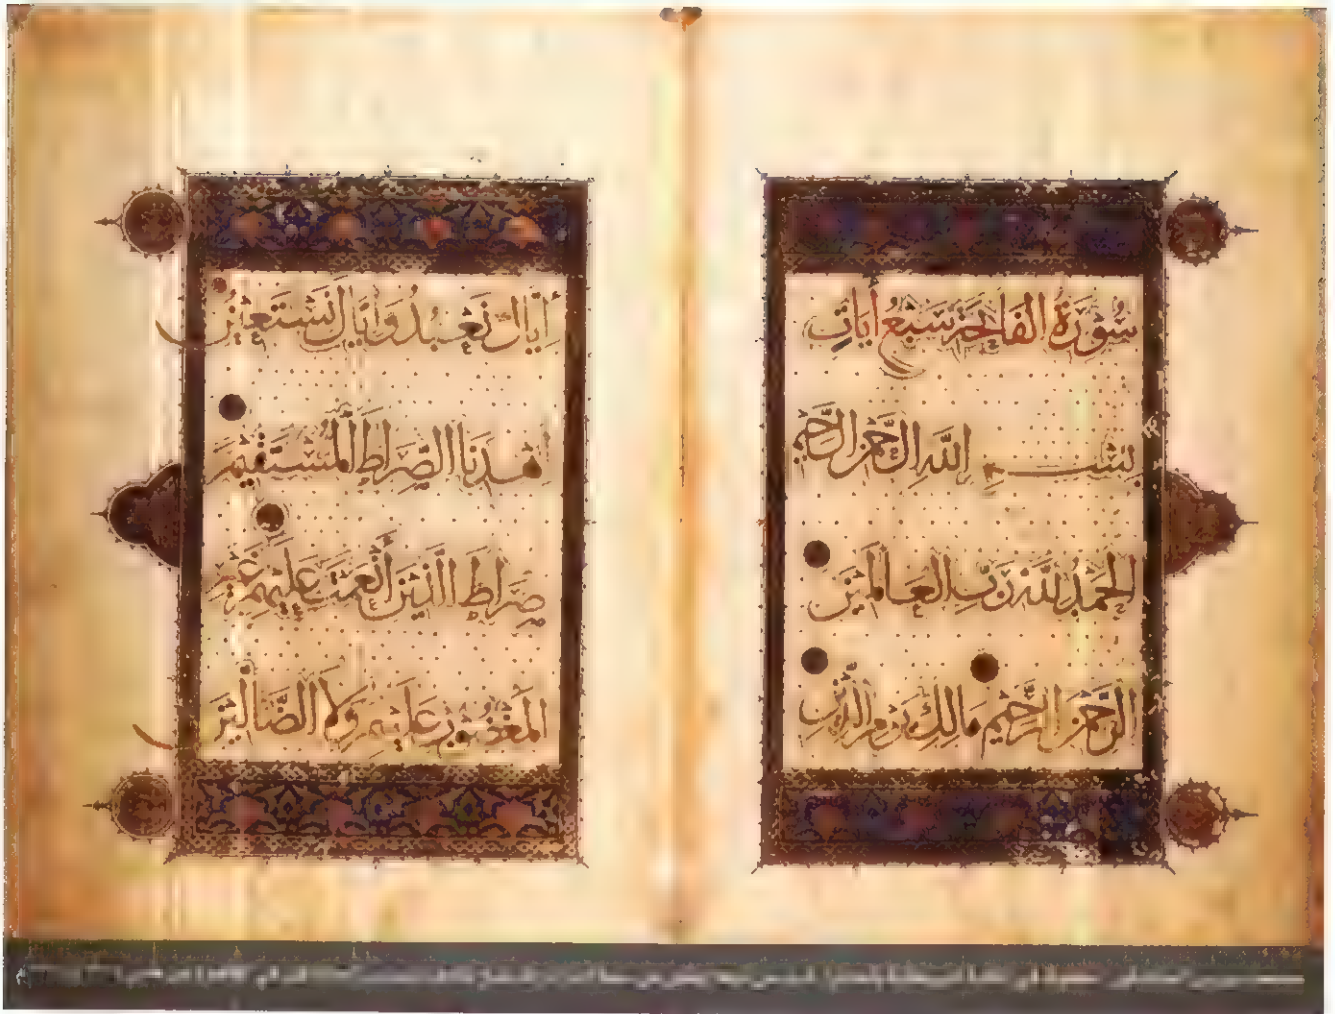 سُورَةُ الفَاتِحَةِ سَبْعُ أَيَاتٍ
بِسْمِ اللَّهِ الرَّحْمَنِ الرَّحِيمِ
الحَمْدُ لِلَّهِ رَبِّ العَالَمِينَ
الرَّحْمَنِ الرَّحِيمِ مَالِكِ يَوْمِ الدِّينِ
إِيَّاكَ نَعْبُدُ وَإِيَّاكَ نَسْتَعِينُ
اهْدِنَا الصِّرَاطَ الْمُسْتَقِيمَ
صِرَاطَ الَّذِينَ أَنْعَمْتَ عَلَيْهِمْ غَيْرِ
المَغْضُوبِ عَلَيْهِمْ وَلَا الضَّالِّينَ